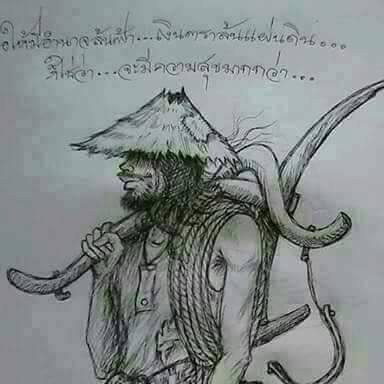 ให้มีอำนาจล้นฟ้า...เงินตราล้นแผ่นดิน...
ใช่ว่า...จะมีความสุขมากกว่า...